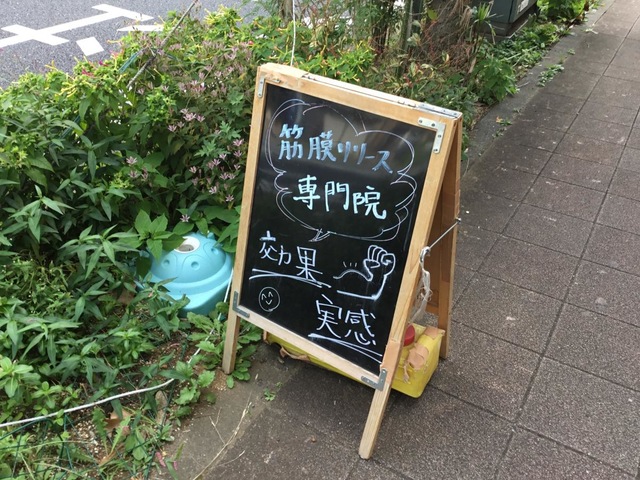 筋膜リリース
専門院
効果
実感